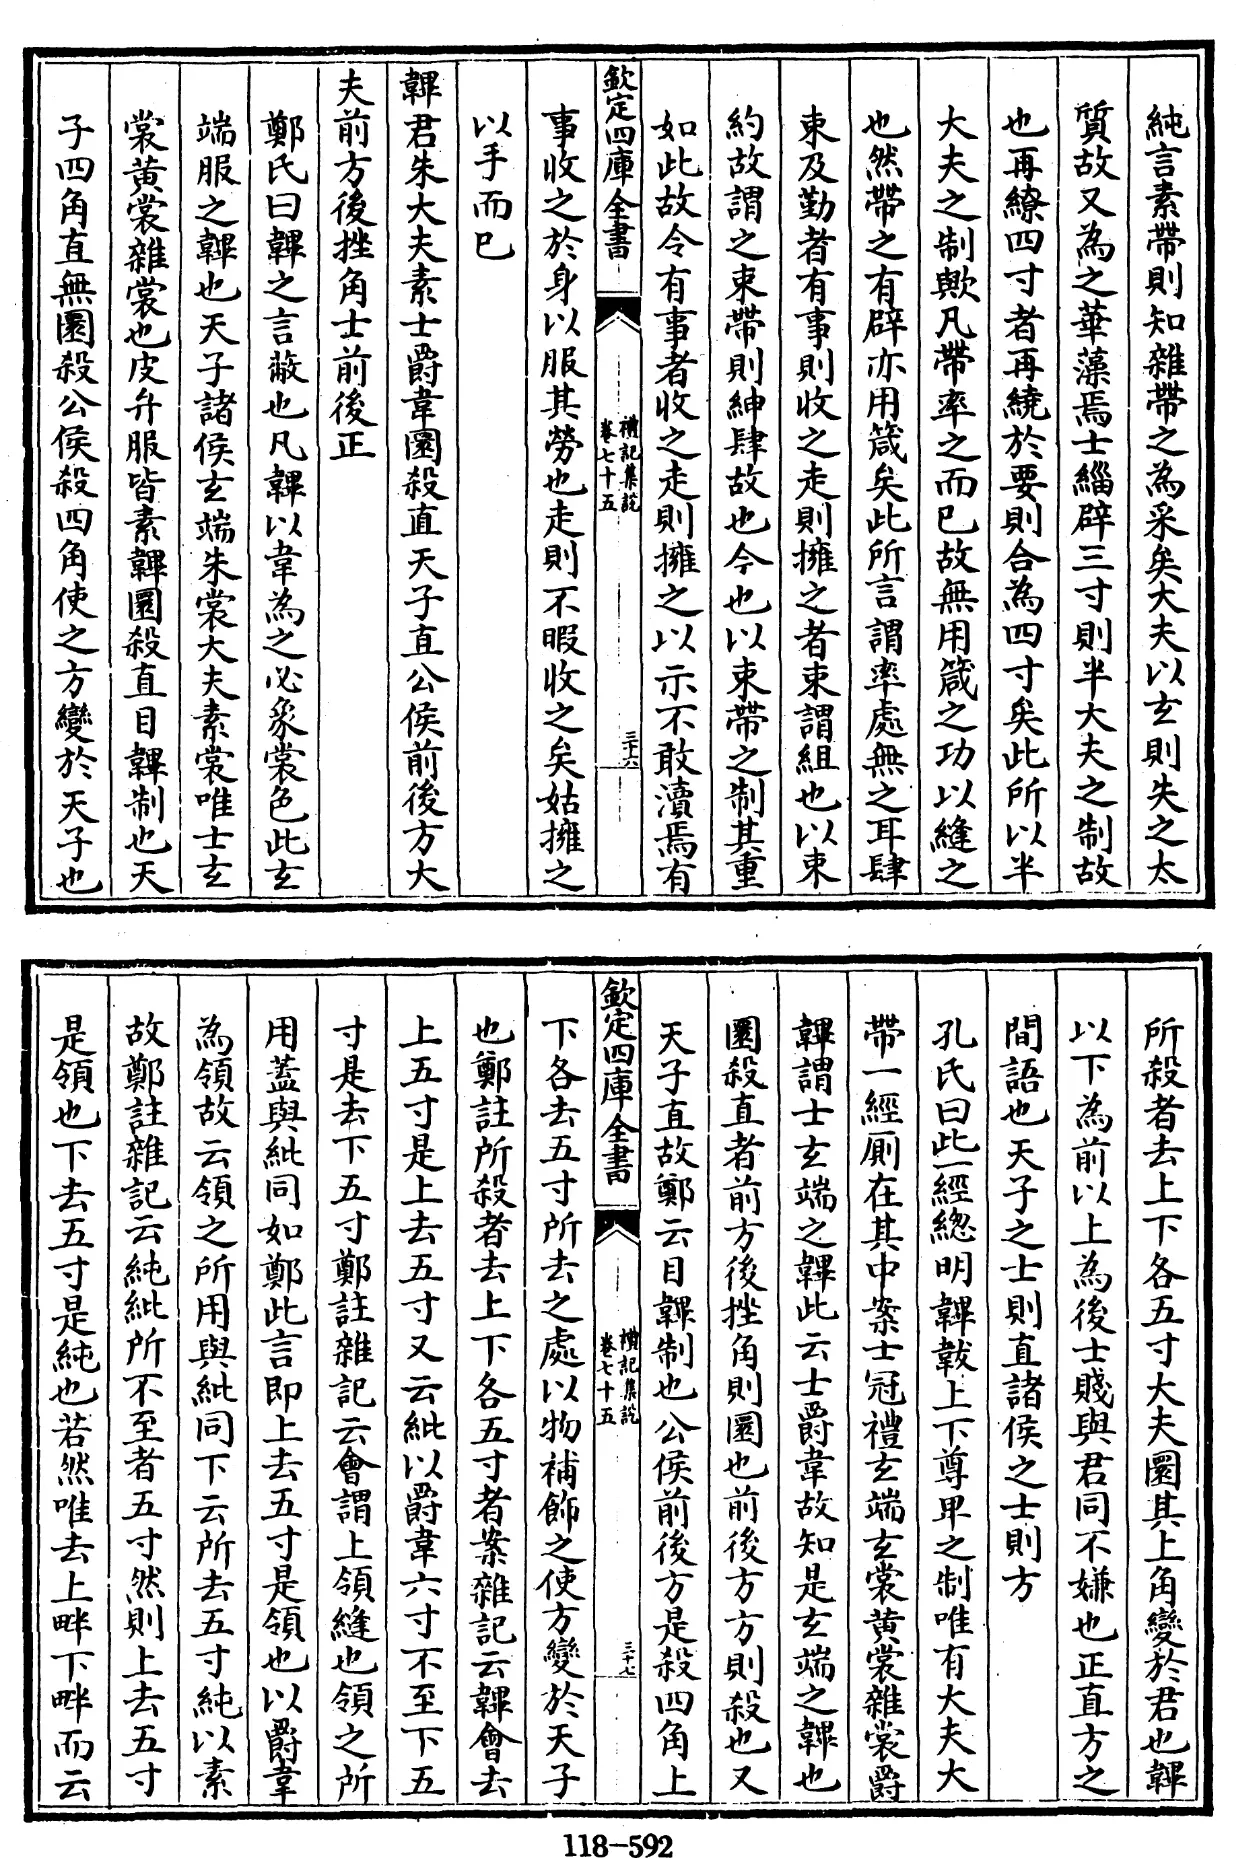 純言素帶則知雜帶之為采矣大夫以玄則失之太
質故又為之華藻焉士緇辟三寸則半大夫之制故
也再繚四寸者再繞於要則合為四寸矣此所以半
大夫之制歟凡帶率之而已故無用箴之功以縫之
也然帶之有辟亦用箴矣此所言謂率處無之耳肆
束及勤者有事則收之走則擁之者束謂組也以束
約故謂之束帶則紳肆故也今也以束帶之制其重
如此故令有事者收之走則擁之以示不敢瀆焉有
欽定四庫全書
禮記集說
卷七十五
三十六
事收之於身以服其勞也走則不暇收之矣姑擁之
以手而已
韠君朱大夫素士爵韋圜殺直天子直公侯前後方大
夫前方後挫角士前後正
鄭氏曰韠之言蔽也凡韠以韋為之必象裳色此玄
端服之韠也天子諸侯玄端朱裳大夫素裳唯士玄
裳黃裳雜裳也皮弁服皆素韠圜殺直目韠制也天
子四角直無圜殺公侯殺四角使之方變於天子也
所殺者去上下各五寸大夫圜其上角變於君也韠
以下為前以上為後士賤與君同不嫌也正直方之
間語也天子之士則直諸侯之士則方
孔氏曰此一經總明韠韍上下尊卑之制唯有大夫大
帶一經厠在其中案士冠禮玄端玄裳黃裳雜裳爵
韠謂士玄端之韠此云士爵韋故知是玄端之韠也
圜殺直者前方後挫角則圜也前後方方則殺也又
天子直故鄭云目韠制也公侯前後方是殺四角上
欽定四庫全書
禮記集說
卷七十五
三十七
下各去五寸所去之處以物補飾之使方變於天子
也鄭註所殺者去上下各五寸者案雜記云韠會去
上五寸是上去五寸又云紕以爵韋六寸不至下五
寸是去下五寸鄭註雜記云會謂上領縫也領之所
用蓋與紕同如鄭此言即上去五寸是領也以爵韋
為領故云領之所用與紕同下云所去五寸純以素
故鄭註雜記云純紕所不至者五寸然則上去五寸
是領也下去五寸是純也若然唯去上畔下畔而云
118-592